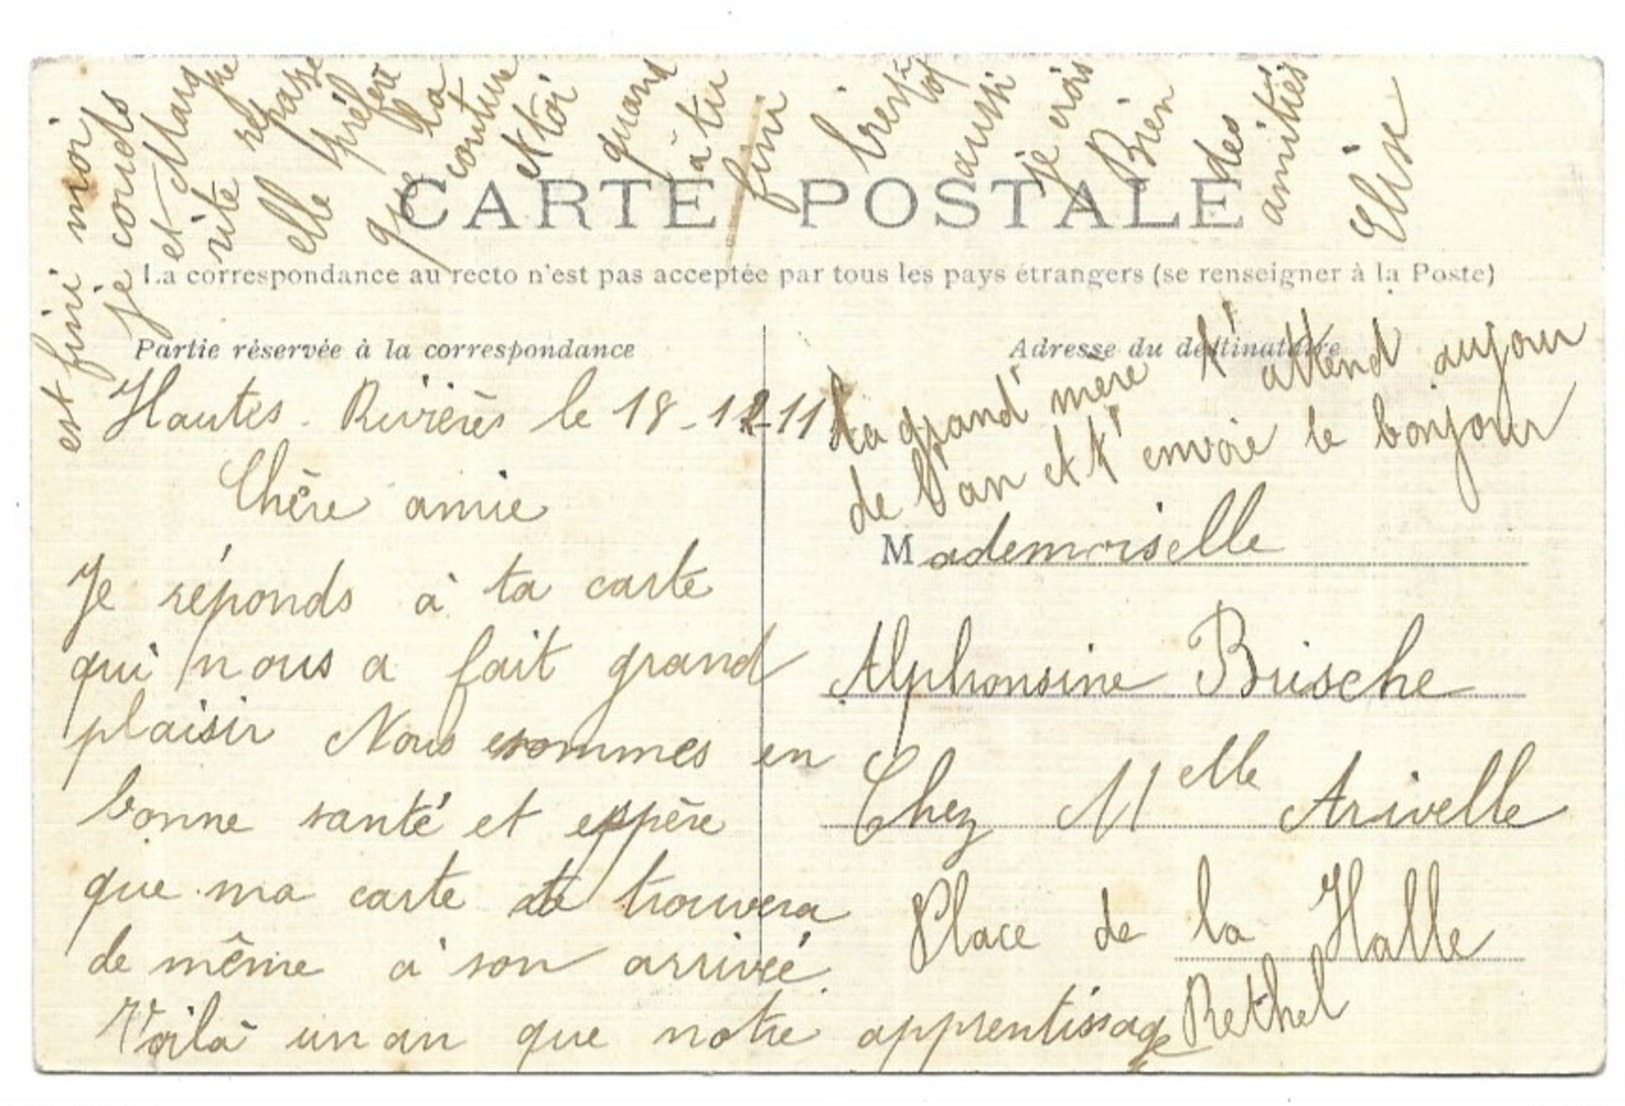 CARTE POSTALE
La correspondance au recto n'est pas acceptée par tous les pays étrangers (se renseigner à la Poste)
Partie réservée à la correspondance
Adresse du destinataire
Hautes-Rivières le 18-12-11
Chère amie
Je réponds à ta carte
qui nous a fait grand
plaisir Nous sommes en
bonne santé et espère
que ma carte te trouvera
de même à son arrivée.
Voilà un an que notre apprentissage
est fini moi
je couds
et Margue
rite repasse
elle préfère
que la
couture
et toi
quand
à tu
fini
bientôt
aussi
je crois
Bien
des
amitiés
Elise
ta grand'mère t'attend aujour
de l'an et t'envoie le bonjour
Mademoiselle
Alphonsine Brische
Chez Melle Arivelle
Place de la Halle
Rethel